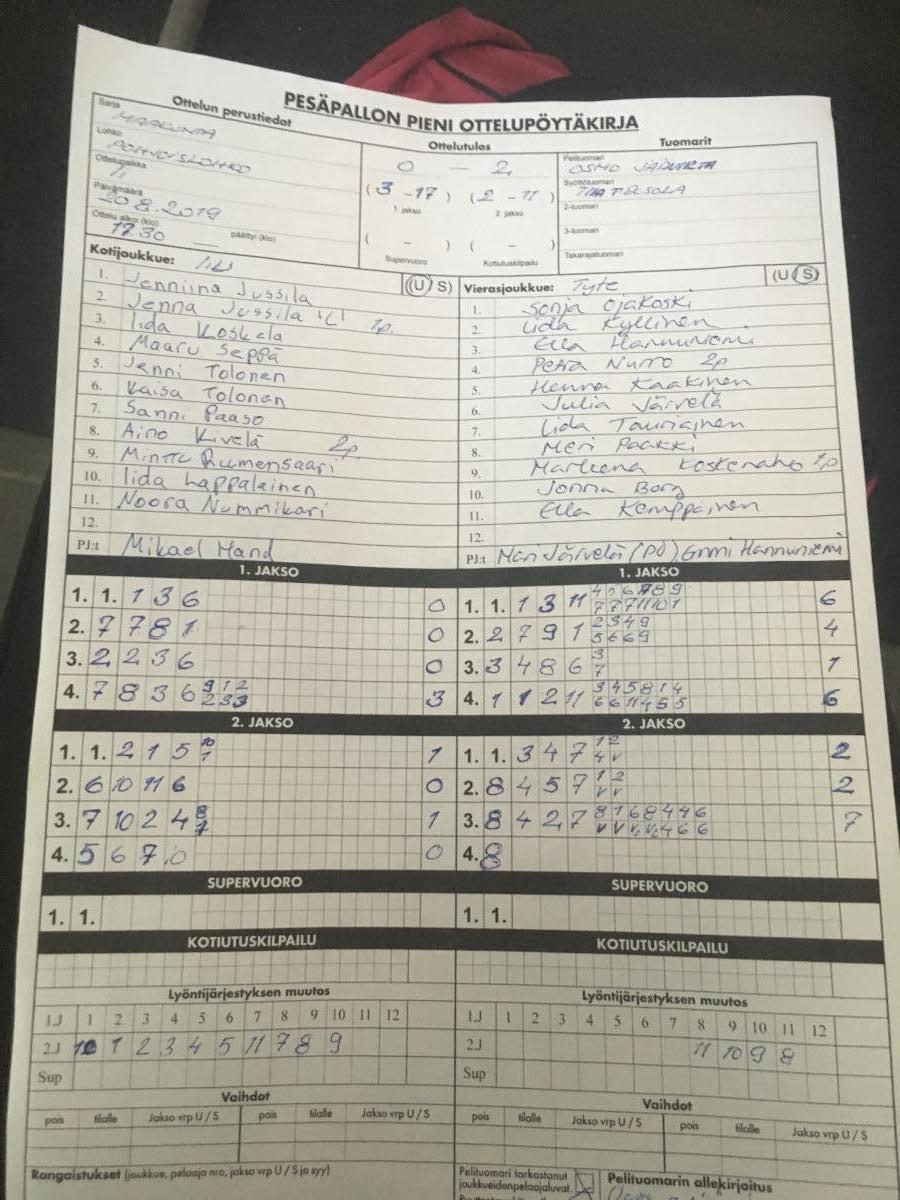 PESÄPALLON PIENI OTTELUPÖYTÄKIRJA
Ottelun perustiedot
Sarja
MAAKUNTA
Lohko
POHJOISLOHKO
Ottelupaikka
Päivämäärä
20.8.2019
Ottelu alkoi (klo)
17.30
päättyi (klo)
Ottelutulos
0 – 2
(3 -17) (2 -11)
1. jakso 2. jakso
( - ) ( - )
Supervuoro Kotiutuskilpailu
Tuomarit
Pelituomari
OSMO
Syöttötuomari
2-tuomari
3-tuomari
Takarajatuomari
Kotijoukkue: (U S)
1. Jenniina Jussila
2. Jenna Jussila "L" 1p.
3. Iida Koskela
4. Maaru Seppä
5. Jenni Tolonen
6. Kaisa Tolonen
7. Sanni Paaso
8. Aino Kivelä 2p.
9. Minttu Rumensaari
10. Iida Lappalainen
11. Noora Nummikari
12.
PJ:t Mikael Hand
Vierasjoukkue: Tyte (U S)
1. Sonja Ojakoski
2. Iida Kyllinen
3. Ella Hannuniemi
4. Petra Nurro 2p
5. Henna Kaakinen
6. Julia Järvelä
7. Iida Tauriainen
8. Meri Paakki
9. Marleena Koskenaho 1p
10. Jonna Borg
11. Ella Kemppainen
12.
PJ:t Mari Järvelä (PO) Emmi Hannuniemi
1. JAKSO
1. 1. 1 3 6 0
2. 7 7 8 1 0
3. 2 2 3 6 0
4. 7 8 3 6 9 1 2 3
2 3 3
1. JAKSO
1. 1. 1 3 11 4 5 6 7 8 9 6
7 7 7 11 10 1
2. 2 7 9 1 2 3 4 9 4
5 6 6 9
3. 3 4 8 6 3 1
7
4. 1 1 2 11 3 4 5 8 1 4 6
6 6 11 4 5 5
2. JAKSO
1. 1. 2 1 5 10 1
1
2. 6 10 11 6 0
3. 7 10 2 4 8 1
4. 5 6 7 10 0
2. JAKSO
1. 1. 3 4 7 1 2 2
4 v
2. 8 4 5 7 1 2 2
v v
3. 8 4 2 7 8 1 6 8 4 4 6 7
v v v v 4 6 6
4. 8
SUPERVUORO
1. 1.
SUPERVUORO
1. 1.
KOTIUTUSKILPAILU
KOTIUTUSKILPAILU
Lyöntijärjestyksen muutos
1.J 1 2 3 4 5 6 7 8 9 10 11 12
2.J 10 1 2 3 4 5 11 7 8 9
Sup
Lyöntijärjestyksen muutos
1.J 1 2 3 4 5 6 7 8 9 10 11 12
2.J 11 10 9 8
Sup
Vaihdot
pois tilalle Jakso vrp U / S pois tilalle Jakso vrp U / S
Vaihdot
pois tilalle Jakso vrp U / S pois tilalle Jakso vrp U / S
Rangaistukset (joukkue, pelaaja nro, jakso vrp U / S ja syy)
Pelituomari tarkastanut
joukkueidenpelaajaluvat.
Pelituomarin allekirjoitus